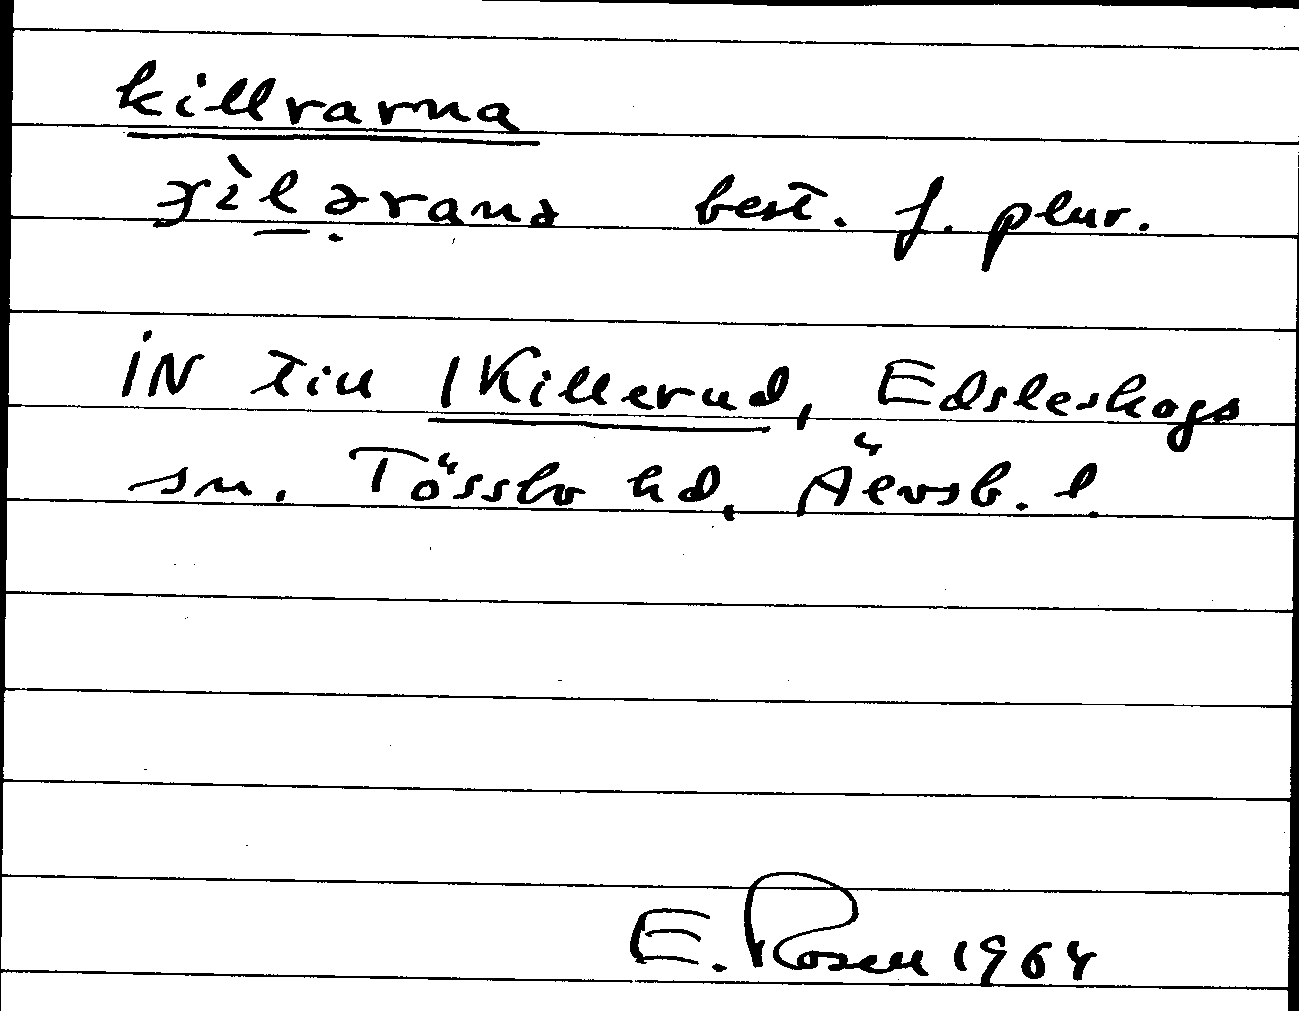 killrarna
best. f. plur.
iN till Killerud, Edsleskogs
sn. Tössbo hd, Älvsb. l.
E. Rosell 1964